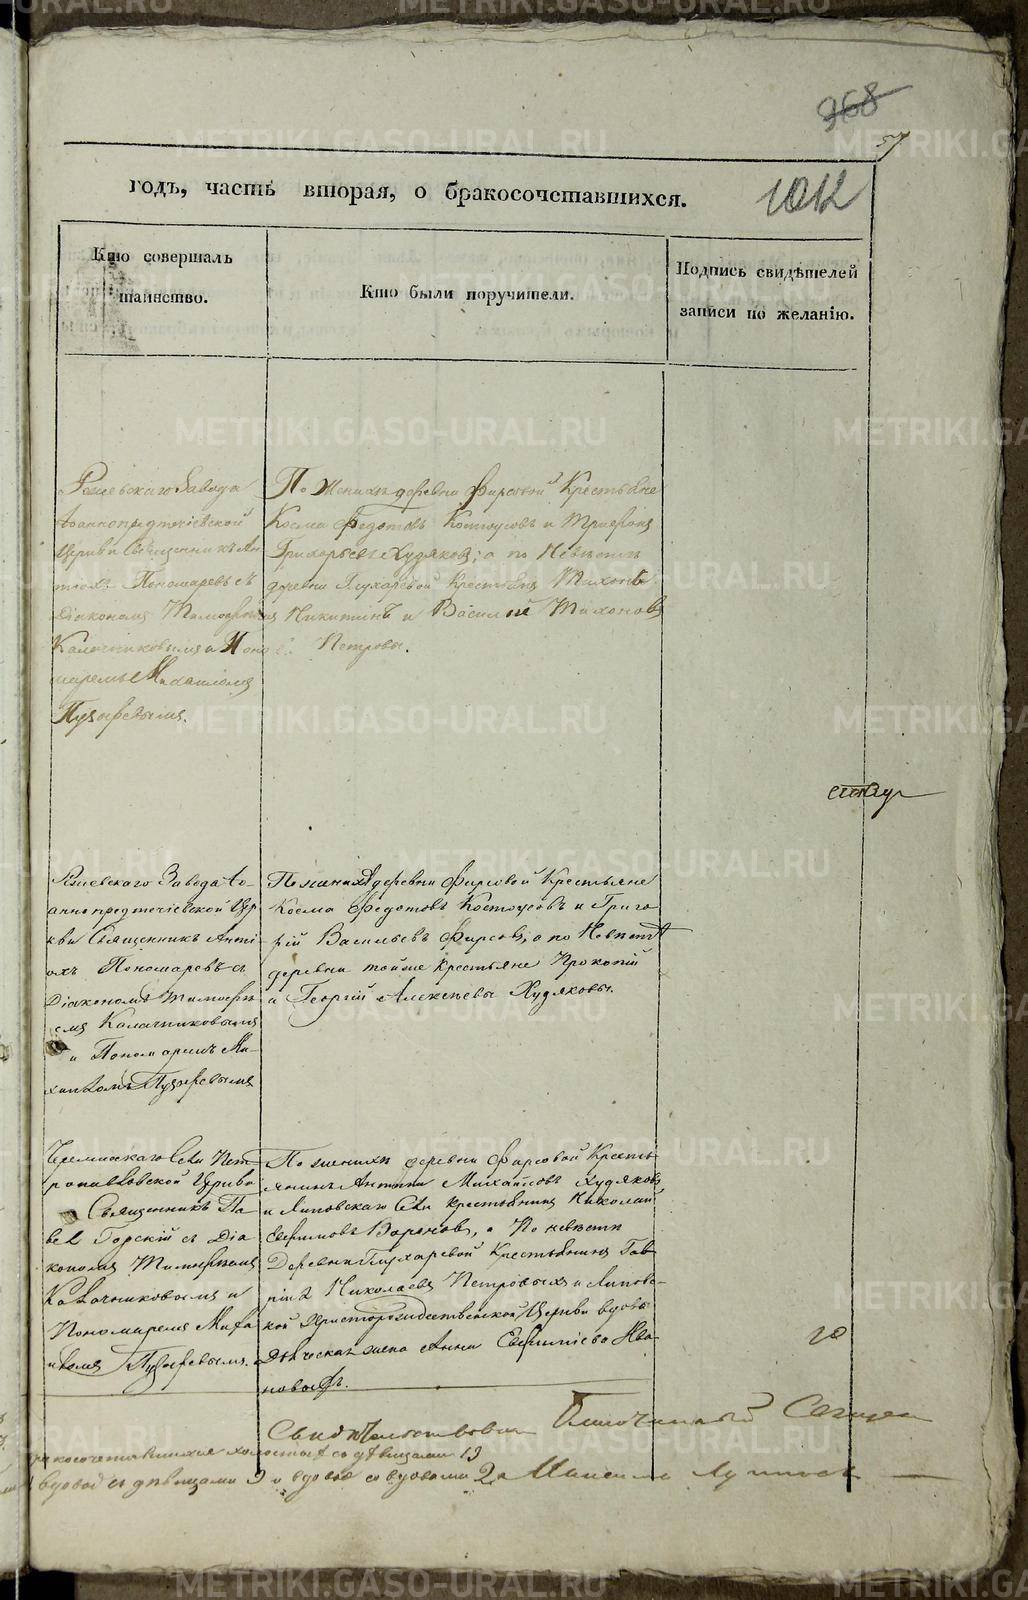 968
57
годъ, часть вторая, о бракосочетавшихся.
1012
Кто совершалъ
таинство.
Кто были поручители.
Подпись свидѣтелей
записи по желанію.
Режевскаго Завода
Іоаннопредтечіевской
Церкви Священникъ Ан
тіохъ Пономаревъ съ
Діакономъ Тимофеемъ
Калачниковымъ и Поно
маремъ Михаиломъ
Пузыревымъ.
По Женихѣ деревни Фирсовой Крестьяне
Косма Федотовъ Костоусовъ и Трифонъ
Григорьевъ Худяковъ; а по Невѣстѣ
деревни Глухаревой Крестьяне Тихонъ
Никитинъ и Василей Тихоновъ
Петровы.
Режевскаго Завода Іо-
аннопредтечіевской Цер
кви Священникъ Анті
охъ Пономаревъ съ
Діакономъ Тимофе
емъ Калачниковымъ
и Пономаремъ Ми-
хаиломъ Пузыревымъ
По женихѣ деревни Фирсовой Крестьяне
Косма Федотовъ Костоусовъ и Григо
рій Васильевъ Фирсовъ, а по Невѣстѣ
деревни тойже крестьяне Прокопій
и Георгій Алексѣевы Худяковы.
Черемисскаго Села Пет
ропавловской Церкви
Священникъ Па
велъ Горскій съ Діа
кономъ Тимофеемъ
Калачниковымъ и
Пономаремъ Миха
иломъ Пузыревымъ.
По женихѣ деревни Фирсовой Кресть
янинъ Антипа Михайловъ Худяковъ
и Липовскаго Села крестьянинъ Николай
Ефимовъ Вороновъ, а По невѣстѣ
Деревни Глухаревой Крестьянинъ Гав
ріилъ Николаевъ Петровыхъ и Липов-
кой Христорождественской Церкви вдова
Дьяческая жена Анна Евфиміева Ива
новаѣ.
20
Свидѣтельствовалъ Благочинный
бракосочетавшихся холостые со дѣвицами 13
вдовой съ дѣвицами и вдовые со вдовами 2
METRIKI.GASO-URAL.RU